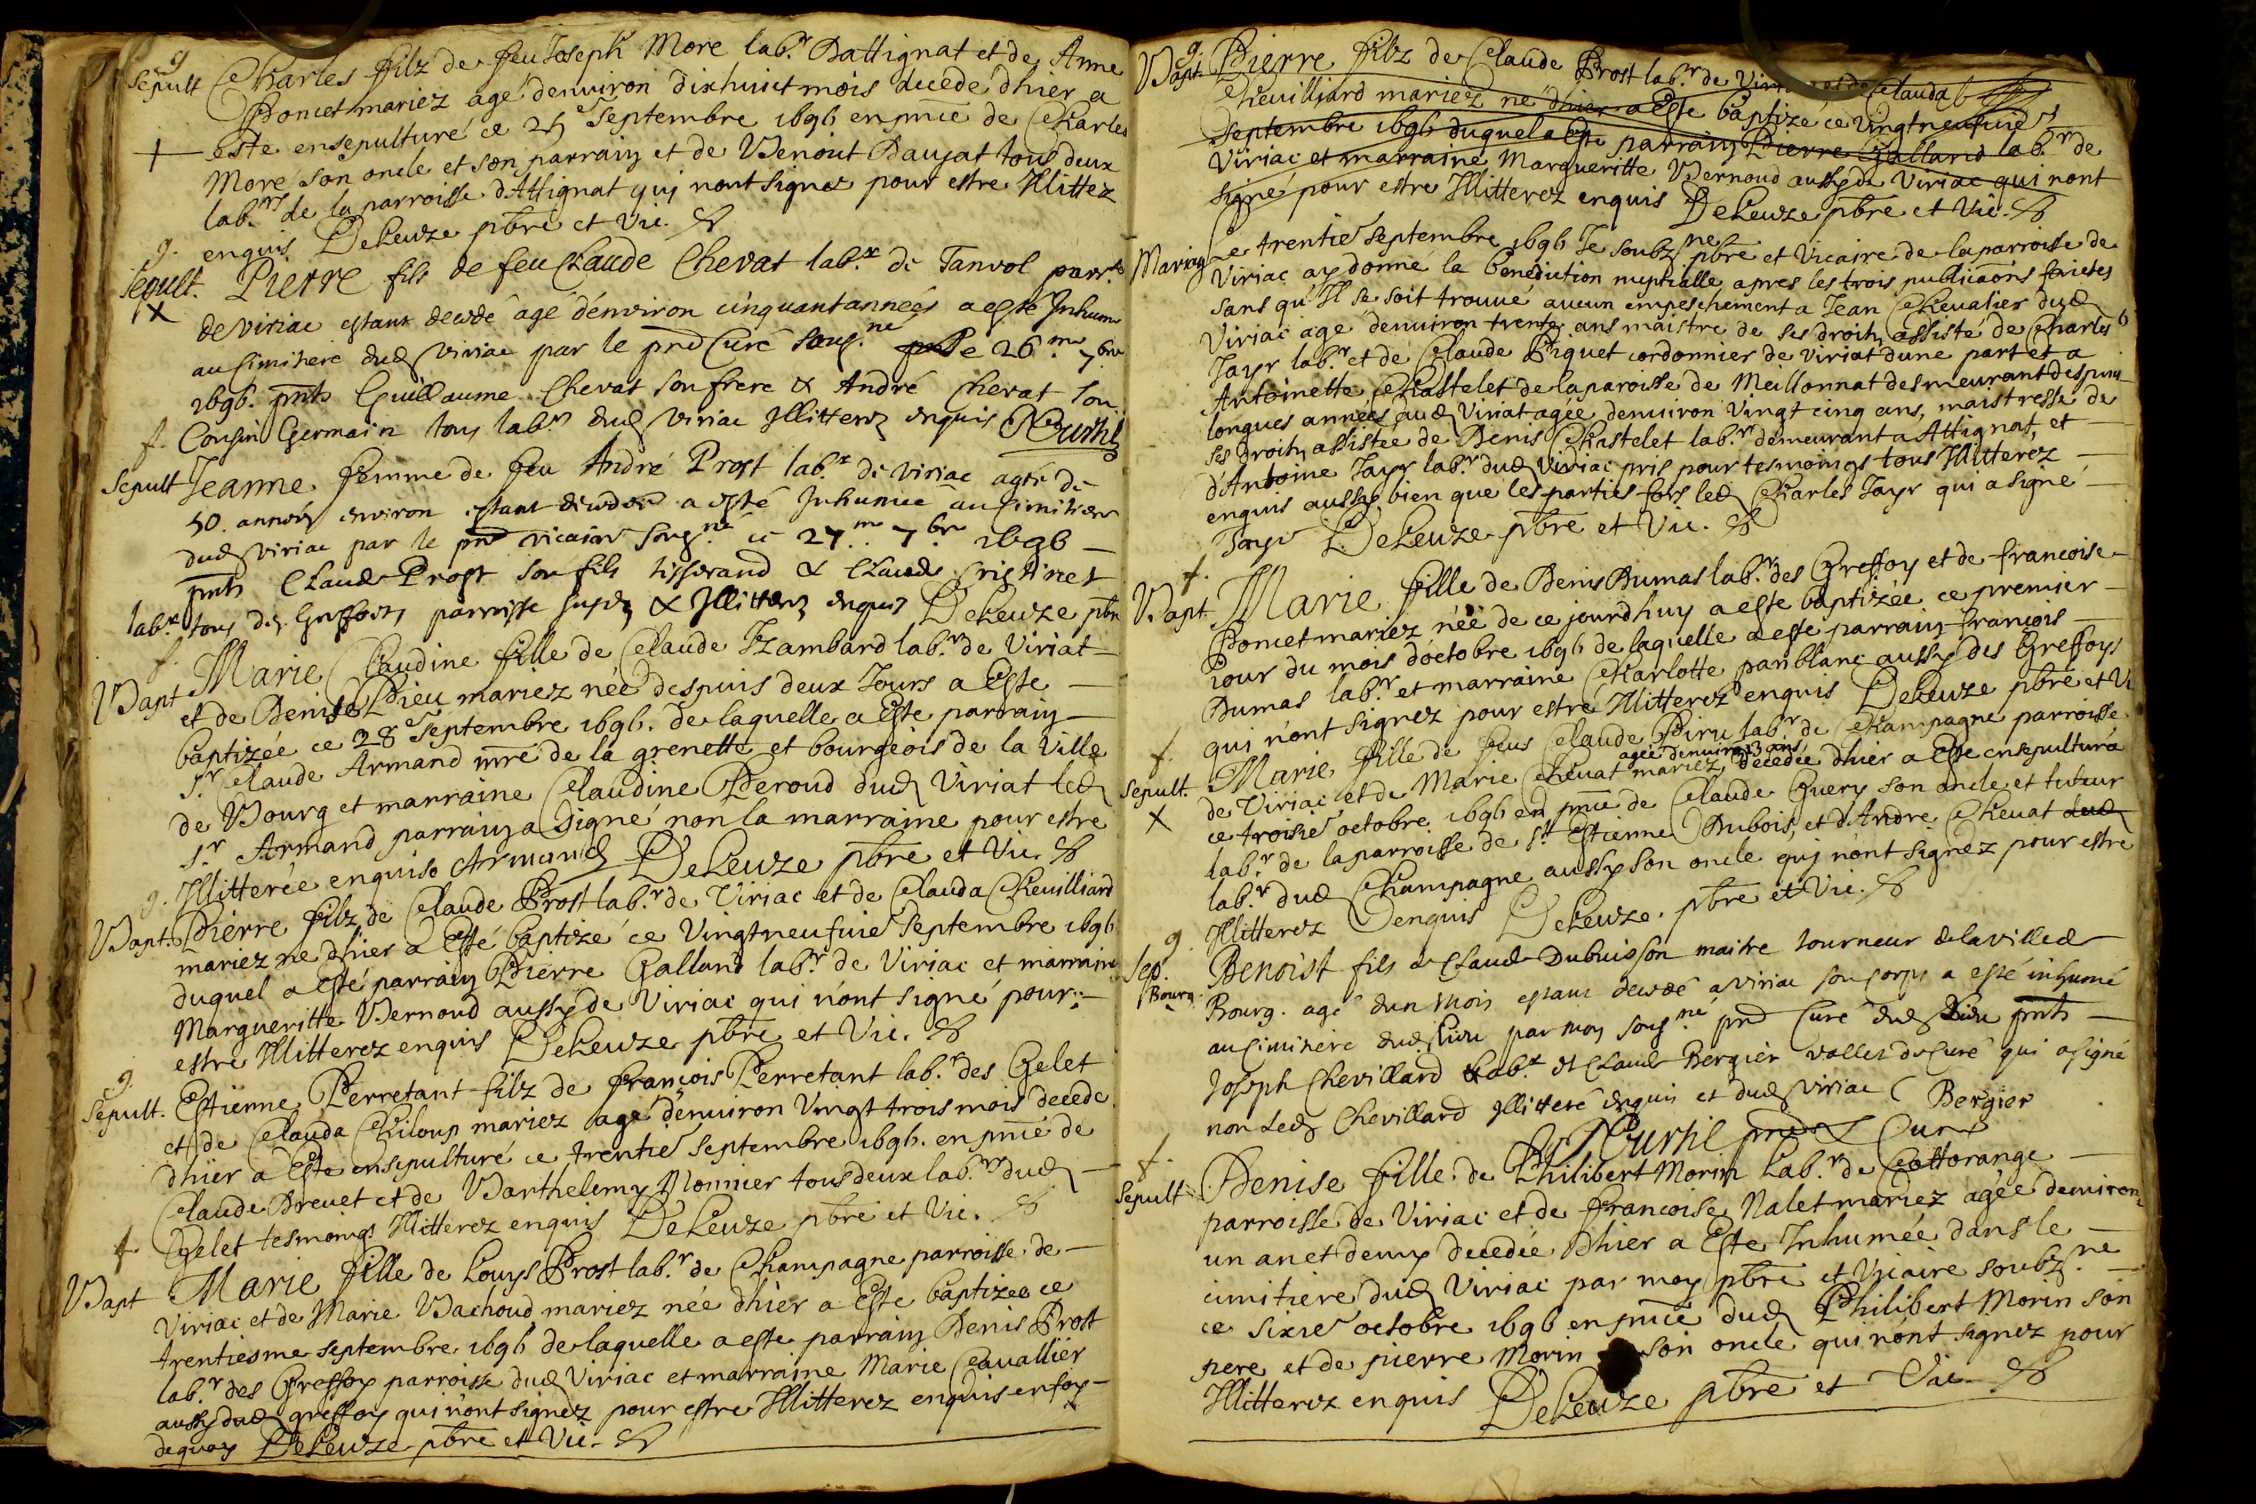 g
Sepult Charles filz de feu Joseph More lab.r Dattignat et de Anne
Poncet mariez agé denuiron dixhuict mois decedé dhier a
esté ensepulturé ce 25e Septembre 1696 en pnce de Charles
More son oncle et son parrain et de Benoit Baujat tous deux
lab.rs de la parroisse dAttignat qui nont signez pour estre Illittez
enquis DeLeuze pbre et Vic.
g.
Sepult. Pierre fils de feu Claude Chevat lab.r de Tanvol parr.se
x de viriac estant decedé agé dénviron cinquant anneés a esté Inhumé
au simitiere dud viriac par le pnt Curé sousg.né le 26.me 7bre
1696. pnts Guillaume Chevat son frere & André Chevat son
Cousin Germain tous lab.rs dud viriac Illitterez enquis
f.
Sepult Jeanne femme de feu André Prost lab.r de viriac agée de
50. anneés environ estant decedeé a esté Inhumeé au simitiere
dud viriac par le pnt vicaire sousg.né ce 27.me 7.bre 1696
pnts Claude Prost son fils tisserand & Claude
lab.r tous des Greffoys parroisse susd & Illitterez enquis DeLeuze pbre
f.
Bapt Marie Claudine fille de Claude Izambard lab.r de Viriat
et de Denise Dieu mariez née despuis deux Jours a Esté
baptizée ce 28e Septembre 1696. de laquelle a Esté parrain
s.r Claude Armand mre de la grenette et bourgeois de la Ville
de Bourg et marraine Claudine Peroud dud Viriat led
s.r Armand parrain a Signé non la marraine pour estre
Illitterée enquise Armand DeLeuze pbre et Vic.
g.
Bapt. Pierre filz de Claude Prost lab.r de Viriac et de Clauda Cheuilliard
mariez né dhier a Esté baptizé ce Vingtneufuie Septembre 1696
duquel a esté parrain Pierre Galland lab.r de Viriac et marraine
Margueritte Bernoud aussy de Viriac qui nont signé pour
estre Illitterez enquis DeLeuze pbre et Vic.
g.
Sepult. Estienne Perretant filz de francois Perretant lab.r des Gelet
et de Clauda Chiloup mariez agé denuiron Vingt trois mois decedé
dhier a Esté ensepulturé ce trentie Septembre 1696. en pnce de
Claude Breuet et de Barthelemy Monnier tous deux lab.rs dud
Gelet tesmoings Illitterez enquis DeLeuze pbre et Vic.
f.
Bapt Marie fille de Louys Prost lab.r de Champagne parroisse de
Viriac et de Marie Bachoud mariez née dhier a Esté baptizée ce
trentiesme septembre 1696 de laquelle a esté parrain Denis Prost
lab.r des Greffoy parroisse dud Viriac et marraine Marie Cauallier
aussy dud greffoy qui nont signez pour estre Illitterez enquis en foy
dequoy DeLeuze pbre et Vic.
g.
Bapt. Pierre filz de Claude Prost lab.r de et de Clauda
Cheuilliard mariez né dhier a Esté baptizé ce Vingtneufuie
Septembre 1696 duquel a Esté parrain Pierre Galland lab.r de
Viriac et marraine Margueritte Bernoud aussy de Viriac qui nont
signé pour estre Illitterez enquis DeLeuze pbre et Vic.
Mariag Le trentie Septembre 1696 Je soubz.ne pbre et Vicaire de la parroisse de
Viriac ay donné la benediction nuptialle apres les trois publicaons faictes
sans qu'Il se soit trouué aucun empeschement a Jean Cheualier dud
Viriac agé denuiron trente ans maistre de ses droits assisté de Charles
Jayr lab.r et de Claude Piquet cordonnier de Viriat dune part et a
Antoinette Chastelet de la paroisse de Meillonnat desmeurant despuis
longues annees aud Viriat agée denuiron Vingt cinq ans, maistresse de
ses droits assistée de Denis Chastelet lab.r demeurant a Attignat, et
d'Antoine Jayr lab.r dud Viriac pris pour tesmoings tous Illitterez
enquis aussy bien que les parties fors led Charles Jayr qui a signé
Jayr DeLeuze pbre et Vic.
f.
Bapt. Marie fille de Denis Dumas lab.r des Greffoy et de francoise
Poncet mariez née de ce jourdhuy a esté baptizée ce premier
Jour du mois doctobre 1696 de laquelle a esté parrain francois
Dumas lab.r et marraine Charlotte panblanc aussy des Greffoys
qui nont signez pour estre Illitterez enquis DeLeuze pbre et Vi
f.
Sepult. Marie fille de feus Claude Piru lab.r de Champagne parroisse
agée denuiron 13 ans
x de Viriac et de Marie Cheuat mariez decedée dhier a Esté ensepulturée
ce troisie octobre 1696 en pnce de Claude Guery son oncle et tuteur
lab.r de la parroisse de s.t Estienne Dubois, et d'Andre Cheuat dud
lab.r dud Champagne aussy son oncle qui nont signez pour estre
Illitterez enquis DeLeuze. pbre et Vic.
g.
Sep. Benoist fils de Claude Dubuisson maitre tourneur de la ville de
Bourg. Bourg. agé dun mois estant decedé a viriac son corps a esté inhumé
au simitiere dud lieu par moy sousg.né pnt Curé dud lieu pnts
Joseph Chevillard lab.r et Claude Bergier vallet du Curé qui a signé
non led Chevillard Illitteré enquis et dud viriac Bergier
Curé
f.
Sepult Denise fille de Philibert Morin Lab.r de Cottorange
parroisse de Viriac et de francoise Nalet mariez agée denuiron
un an et demy decedée dhier a Esté Inhumée dans le
cimitiere dud Viriac par moy pbre et Vicaire soubz.né
ce sixie octobre 1696 en pnce dud Philibert Morin son
pere et de pierre Morin son oncle qui nont signez pour
Illitterez enquis DeLeuze pbre et Vic.